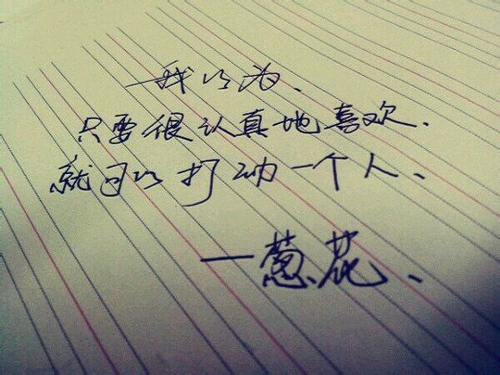 我以为、
只要很认真地喜欢、
就可以打动一个人、
一葱花、